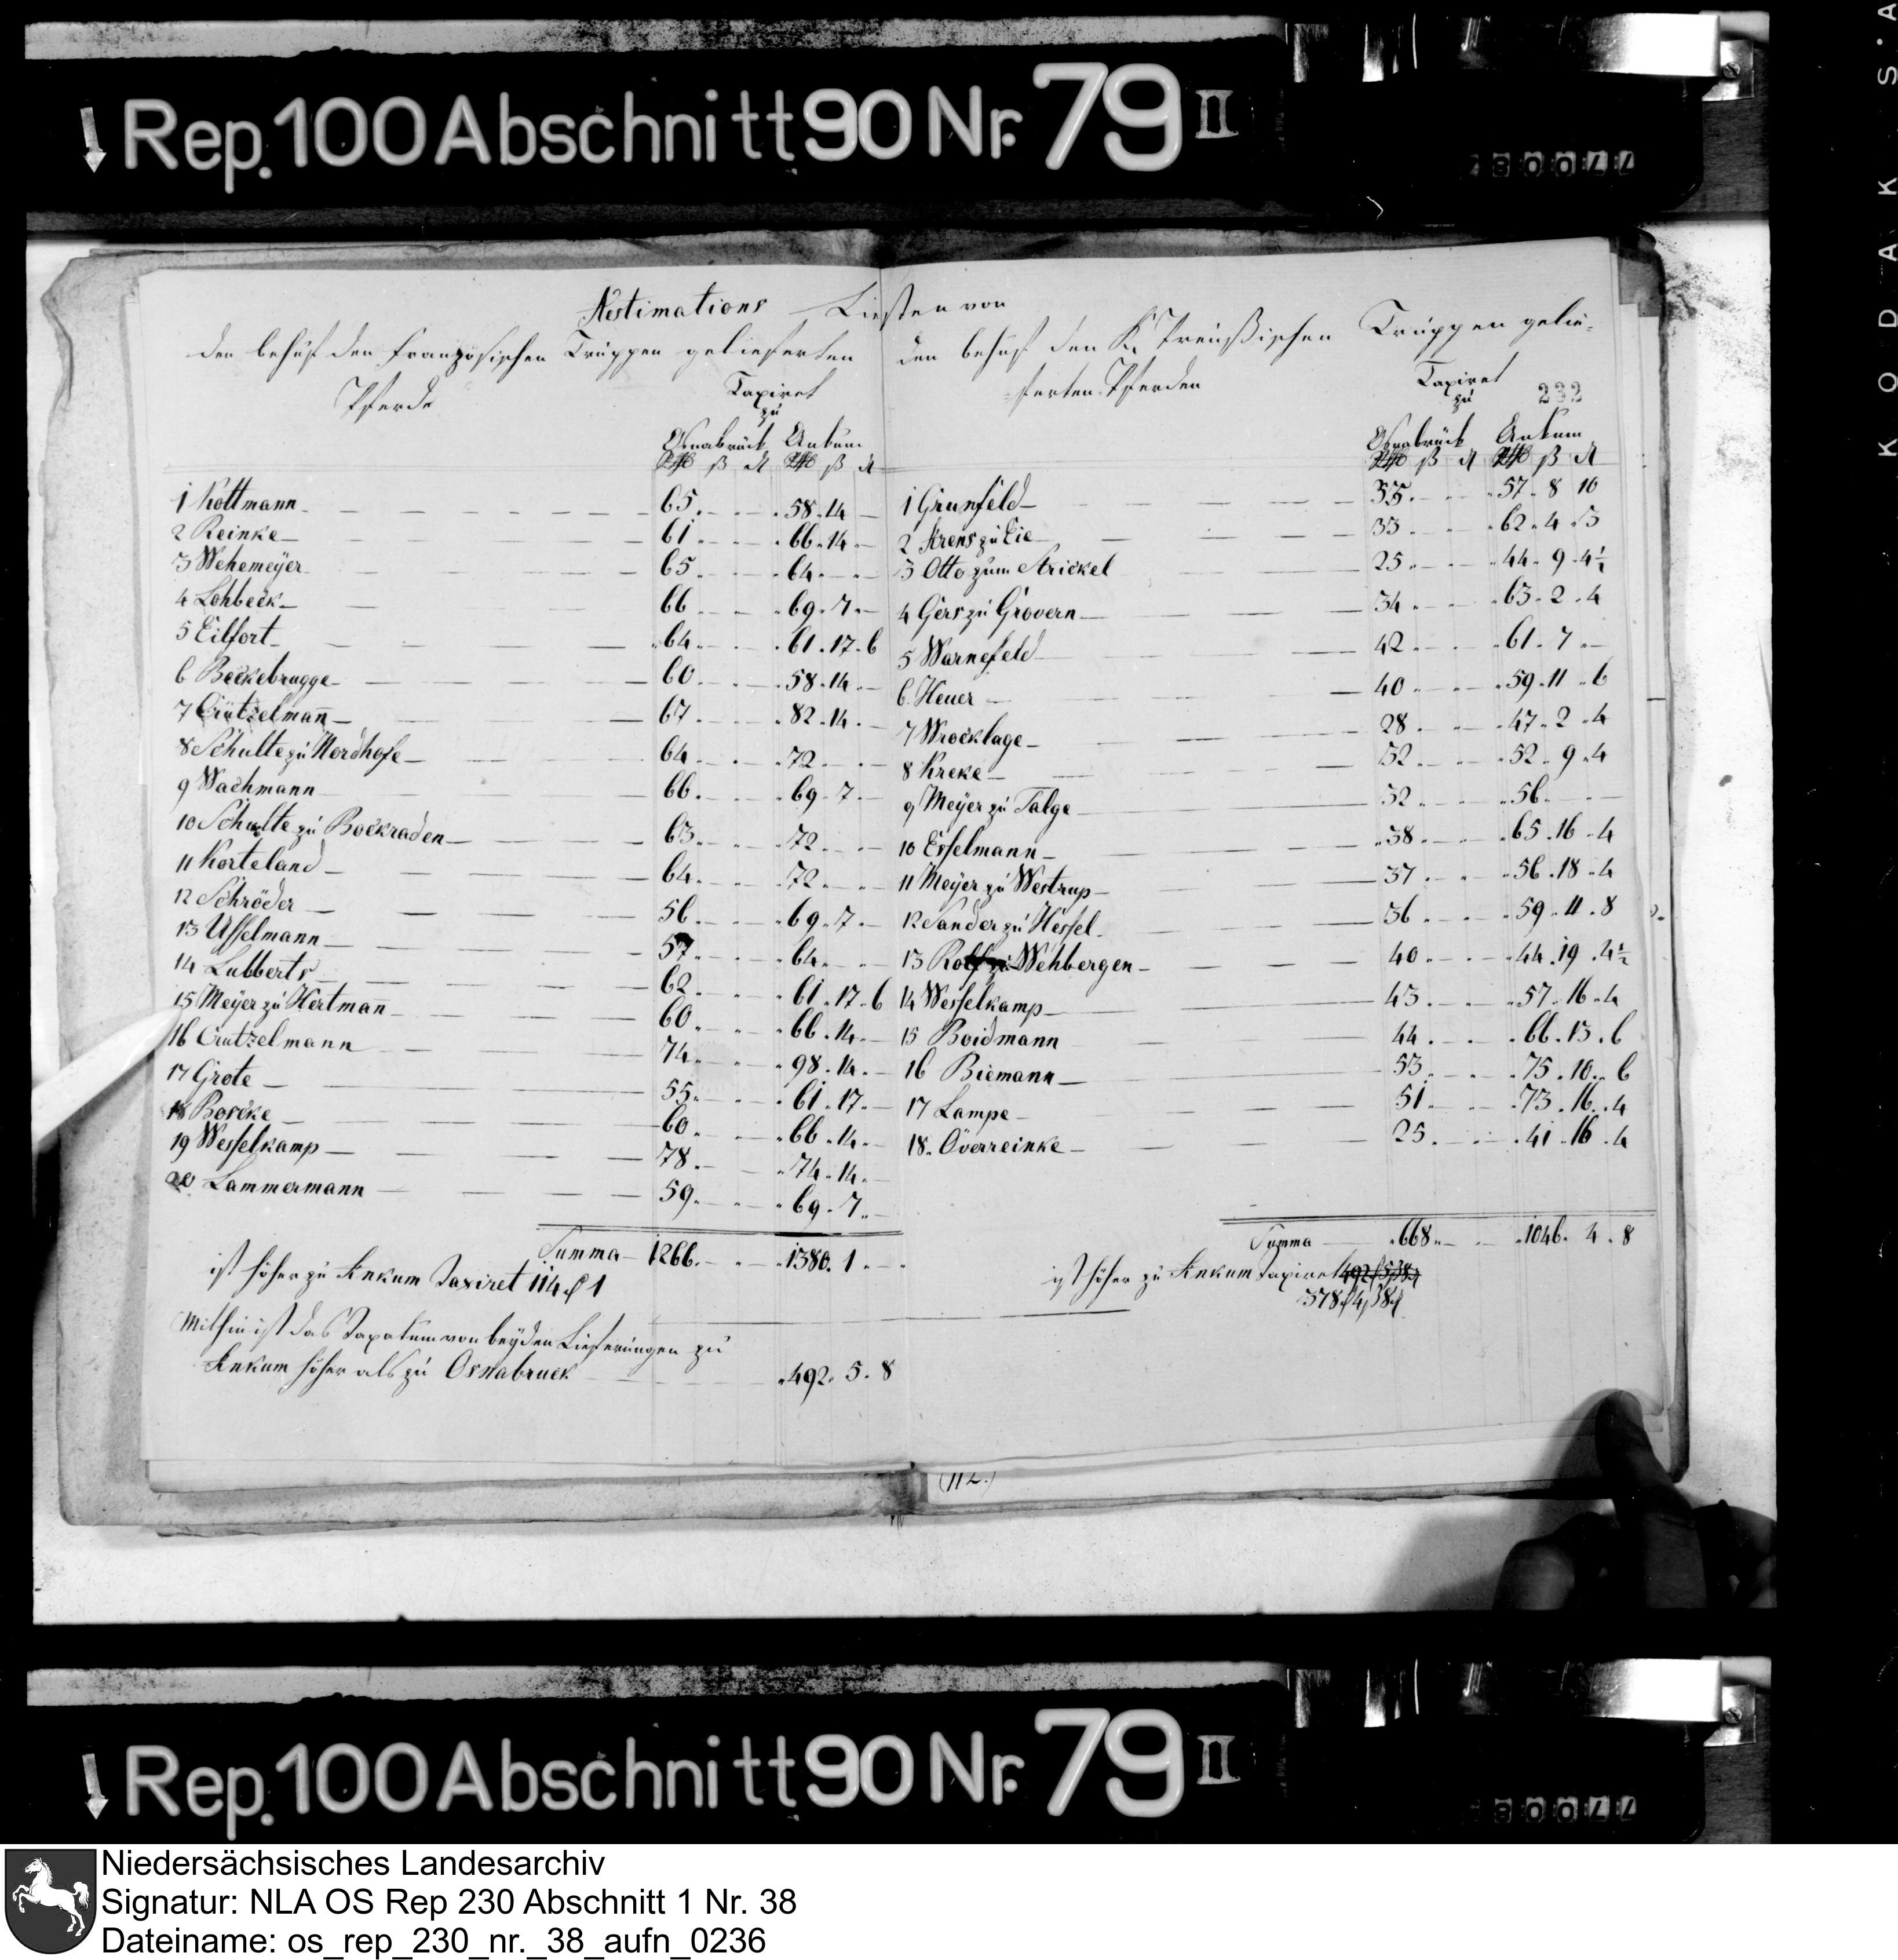 Rep. 100 Abschnitt 90 Nr. 79 II
KODAK S.A
Aestimations Listen von
den behuf den französischen Truppen gelieferten
Pferde
Taxiret
zu
Osnabrück Ankum
Rthlr ß d Rthlr ß d
1 Kottmann 65 58.14
2 Reinke 61 66.14
3 Wehemeÿer 65 64
4 Lohbeck 66 69.7
5 Eilfort 64 61.17.6
6 Beckebrugge 60 58.14
7 Crützelmañ 67 82.14
8 Schulte zu Nordhofe 64 72
9 Wachmann 66 69.7
10 Schulte zu Bockraden 63 72
11 Korteland 64 72
12 Schröder 56 69.7
13 Usselmann 57 64
14 Lubberts 62 61.17.6
15 Meÿer zu Hertman 60 66.14
16 Crutzelmann 74 98.14
17 Grote 55 61.17
18 Borcke 60 66.14
19 Wesselkamp 78 74.14
20 Lammermann 59 69.7
Summa 1266 1380.1
ist höher zu Ankum Taxiret 114 1
Mithin ist das Taxatum von beÿden Lieferungen zu
Ankum höher als zu Osnabruck 492.5.8
den behuf den K. Preußischen Truppen gelie-
ferten Pferden
Taxiret
zu
232
Osnabrück Ankum
Rthlr ß d Rthlr ß d
1 Grunfeld 35 57.8 10
2 Krens zu Lie 33 62.4.3
3 Otto zum Strickel 25 44.9.4½
4 Gers zu Grovern 34 63.2.4
5 Warnefeld 42 61.7
6 Heuer 40 59.11.6
7 Wrocklage 28 47.2.4
8 Kreke 32 52.9.4
9 Meÿer zu Talge 32 56
10 Esselmann 38 65.16.4
11 Meÿer zu Westrup 37 56.18.4
12 Sander zu Hessel 36 59.11.8
13 Rolf zu Wehbergen 40 44.19.4½
14 Wesselkamp 43 57.16.4
15 Boidmann 44 66.13.6
16 Biemann 53 75.10.6
17 Lampe 51 73.16.4
18. Overreinke 25 41.16.4
Summa 668 1046.4.8
ist höher zu Ankum taxiret
378 4 8
Rep. 100 Abschnitt 90 Nr. 79 II
Niedersächsisches Landesarchiv
Signatur: NLA OS Rep 230 Abschnitt 1 Nr. 38
Dateiname: os_rep_230_nr._38_aufn_0236